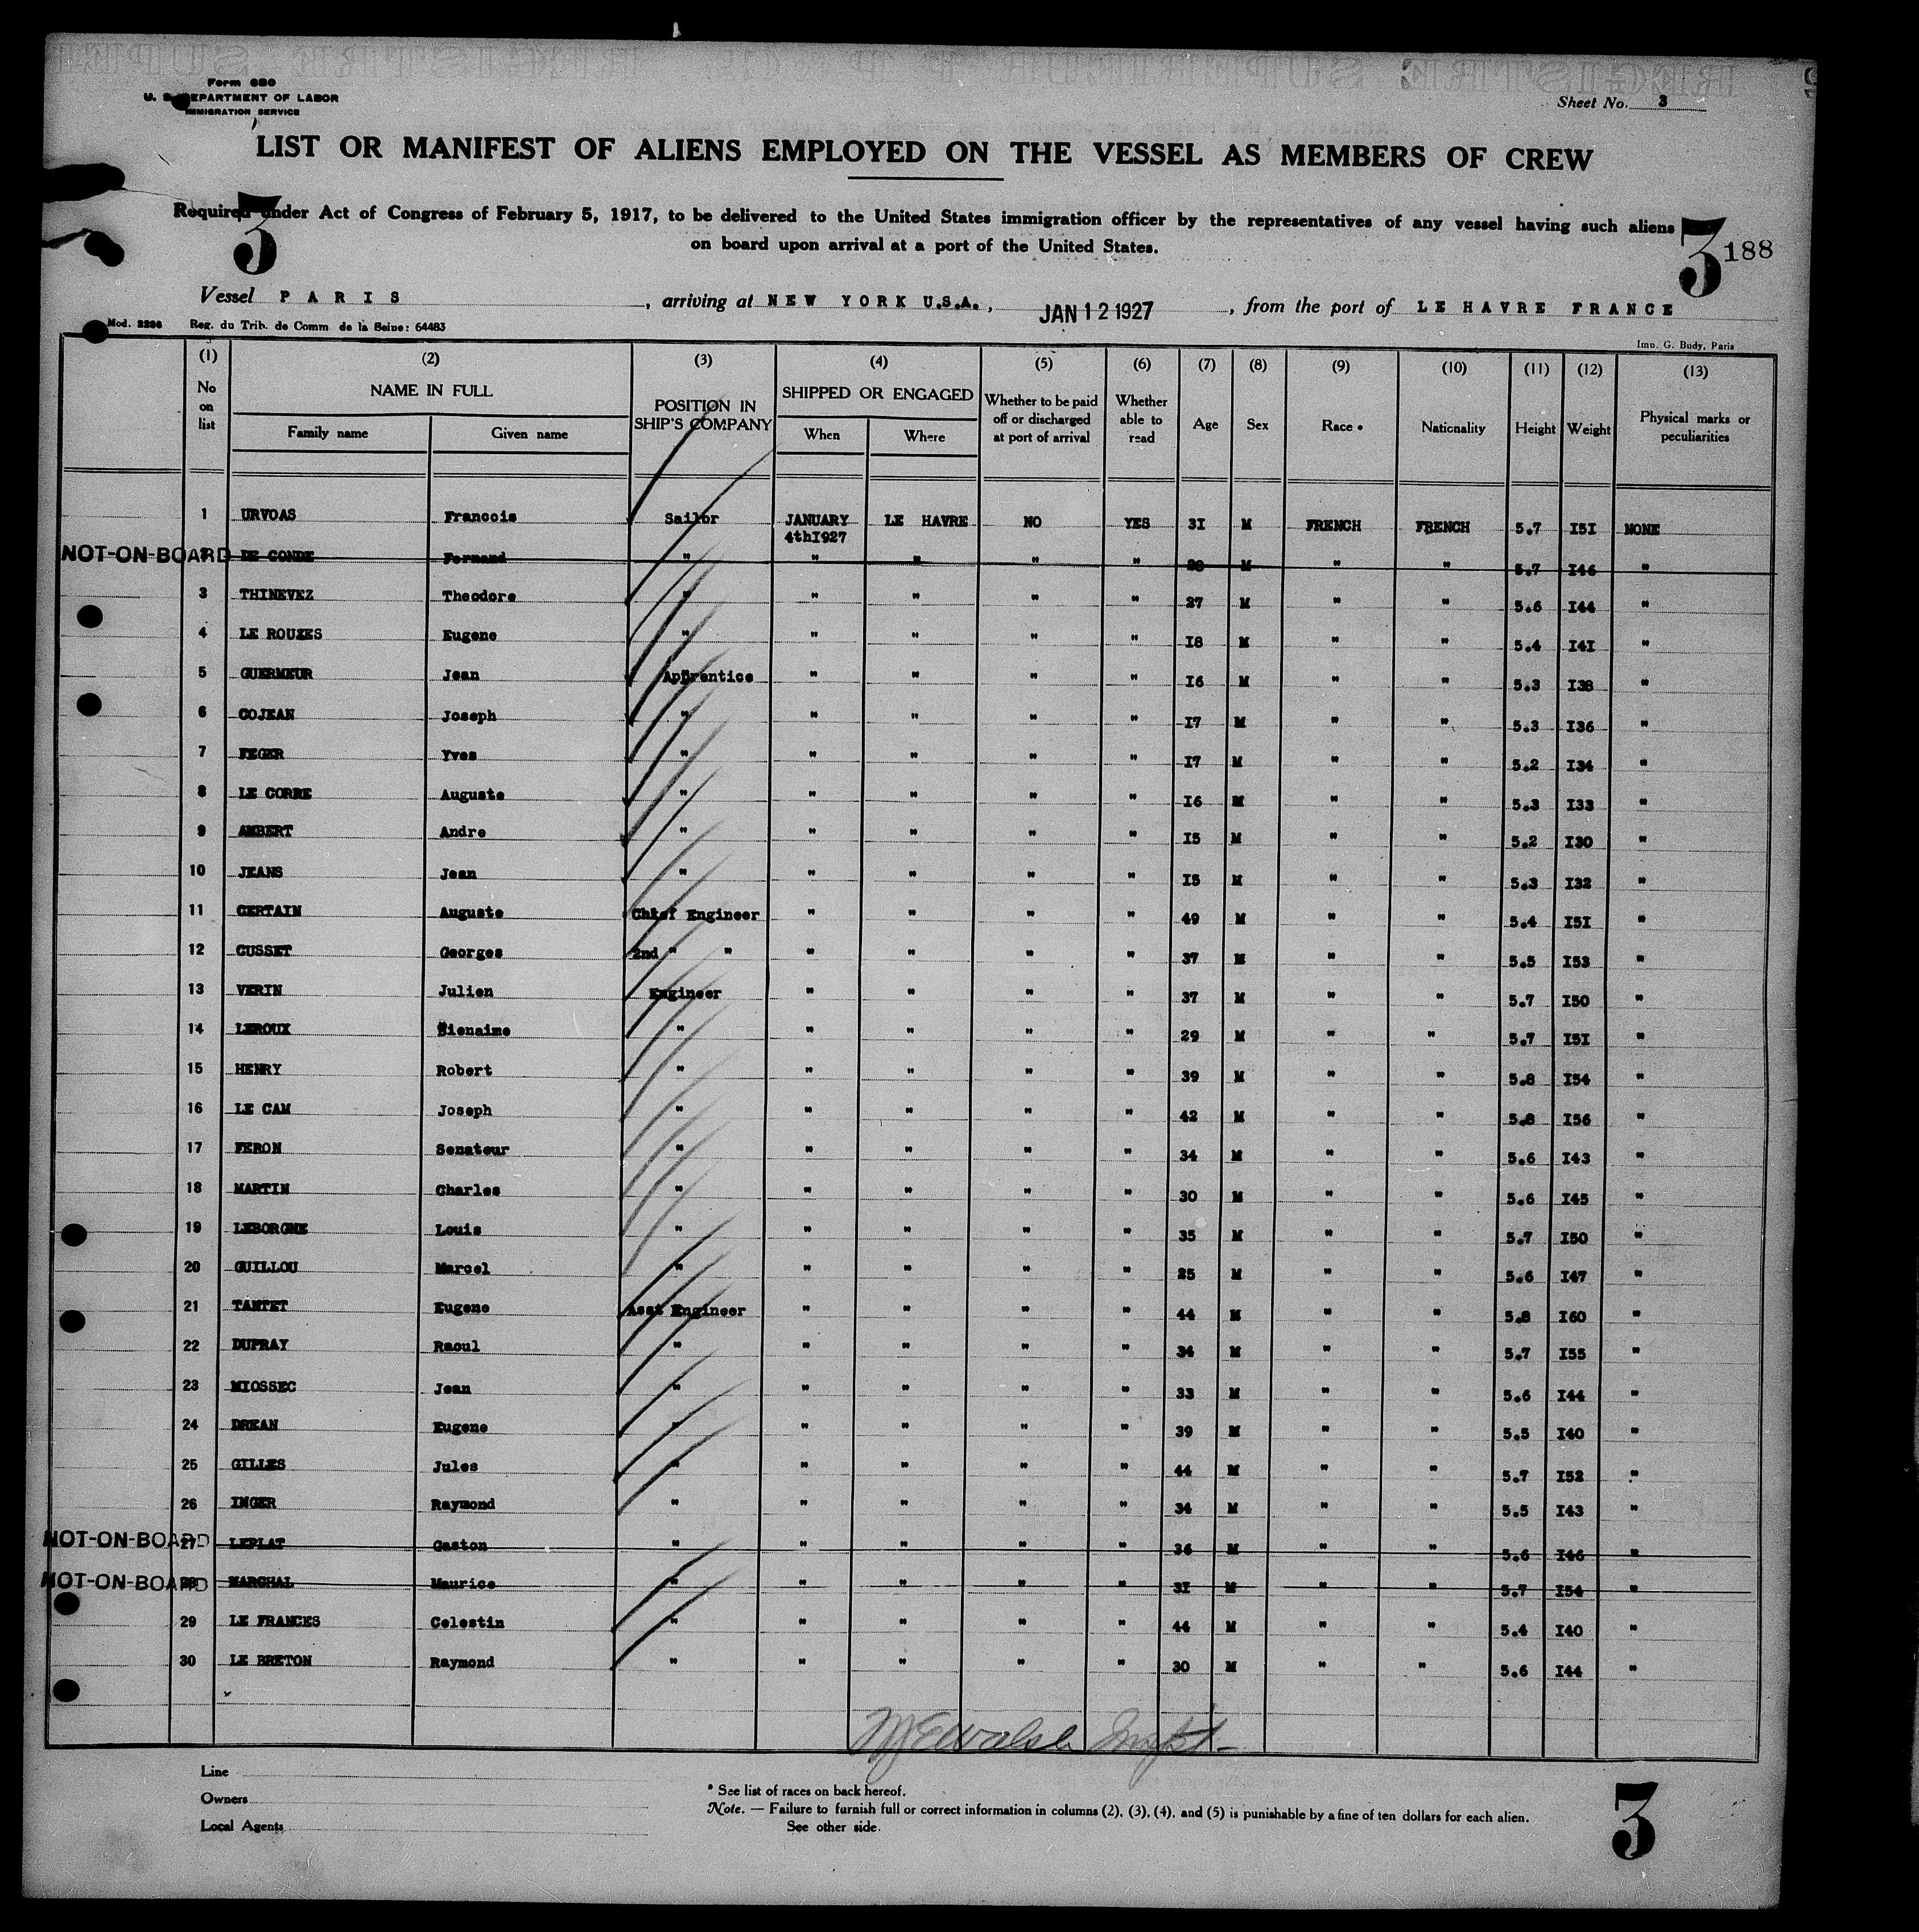 Form 680
U. S. DEPARTMENT OF LABOR
IMMIGRATION SERVICE
Sheet No. 3
LIST OR MANIFEST OF ALIENS EMPLOYED ON THE VESSEL AS MEMBERS OF CREW
Required under Act of Congress of February 5, 1917, to be delivered to the United States immigration officer by the representatives of any vessel having such aliens
on board upon arrival at a port of the United States.
3 3 188
Vessel PARIS, arriving at NEW YORK U.S.A., JAN 12 1927, from the port of LE HAVRE FRANCE
Mod. 2286 Reg. du Trib. de Comm. de la Seine: 64483
Imp. G. Budy, Paris
(1) (2) (3) (4) (5) (6) (7) (8) (9) (10) (11) (12) (13)
No on list NAME IN FULL POSITION IN SHIP'S COMPANY SHIPPED OR ENGAGED Whether to be paid off or discharged at port of arrival Whether able to read Age Sex Race * Nationality Height Weight Physical marks or peculiarities
Family name Given name When Where
1 URVOAS Francois Sailor JANUARY 4thI927 LE HAVRE NO YES 3I M FRENCH FRENCH 5.7 I5I NONE
NOT-ON-BOARD DE CONDE Fernand " " " " " M " " 5.7 I46 "
3 THINEVEZ Theodore " " " " " 27 M " " 5.6 I44 "
4 LE ROUZES Eugene " " " " " I8 M " " 5.4 I4I "
5 GUERMEUR Jean Apprentice " " " " I6 M " " 5.3 I38 "
6 COJEAN Joseph " " " " " I7 M " " 5.3 I36 "
7 FEGER Yves " " " " " I7 M " " 5.2 I34 "
8 LE CORRE Auguste " " " " " I6 M " " 5.3 I33 "
9 AMBERT Andre " " " " " I5 M " " 5.2 I30 "
10 JEANS Jean " " " " " I5 M " " 5.3 I32 "
11 CERTAIN Auguste Chief Engineer " " " " 49 M " " 5.4 I5I "
12 CUSSET Georges 2nd " " " " " " 37 M " " 5.5 I53 "
13 VERIN Julien Engineer " " " " 37 M " " 5.7 I50 "
14 LEROUX Bienaime " " " " " 29 M " " 5.7 I5I "
15 HENRY Robert " " " " " 39 M " " 5.8 I54 "
16 LE CAM Joseph " " " " " 42 M " " 5.8 I56 "
17 FERON Senateur " " " " " 34 M " " 5.6 I43 "
18 MARTIN Charles " " " " " 30 M " " 5.6 I45 "
19 LEBORGNE Louis " " " " " 35 M " " 5.7 I50 "
20 GUILLOU Marcel " " " " " 25 M " " 5.6 I47 "
21 TANTET Eugene Asst Engineer " " " " 44 M " " 5.8 I60 "
22 DUPRAY Raoul " " " " " 34 M " " 5.7 I55 "
23 MIOSSEC Jean " " " " " 33 M " " 5.6 I44 "
24 DREAN Eugene " " " " " 39 M " " 5.5 I40 "
25 GILLES Jules " " " " " 44 M " " 5.7 I52 "
26 INGER Raymond " " " " " 34 M " " 5.5 I43 "
NOT-ON-BOARD 27 LEPLAT Gaston " " " " " 36 M " " 5.6 I46 "
NOT-ON-BOARD 28 MARCHAL Maurice " " " " " 3I M " " 5.7 I54 "
29 LE FRANCES Celestin " " " " " 44 M " " 5.4 I40 "
30 LE BRETON Raymond " " " " " 30 M " " 5.6 I44 "
Walsh Inspt.
Line
Owners
Local Agents
* See list of races on back hereof.
Note. — Failure to furnish full or correct information in columns (2), (3), (4), and (5) is punishable by a fine of ten dollars for each alien.
See other side.
3